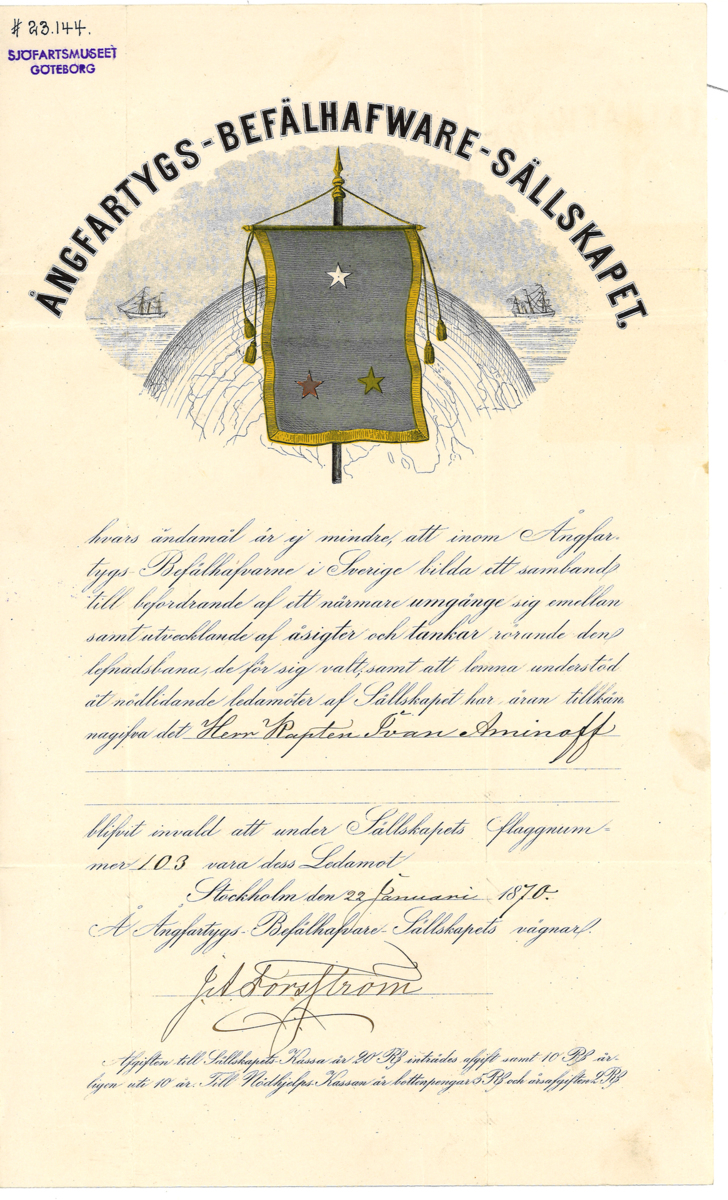 # 23.144.
SJÖFARTSMUSEET
GÖTEBORG
ÅNGFARTYGS-BEFÄLHAFWARE-SÄLLSKAPET,
hvars ändamål är ej mindre, att inom Ångfar-
tygs-Befälhafvarne i Sverige bilda ett samband
till befordrande af ett närmare umgänge sig emellan
samt utvecklande af åsigter och tankar rörande den
lefnadsbana, de för sig valt, samt att lemna understöd
åt nödlidande ledamöter af Sällskapet har äran tillkän-
nagifva det Herr Kapten Ivan Aminoff
blifvit invald att under Sällskapets flaggnum-
mer 103 vara dess Ledamot
Stockholm den 22 Januari 1870.
Å Ångfartygs-Befälhafvare-Sällskapets vägnar.
J. A. Forsström
Afgiften till Sällskapets-Kassa är 20 Rd inträdes afgift samt 10 Rd år-
ligen uti 10 år. Till Nödhjelps-Kassan är bottenpengar 5 Rd och årsafgiften 2 Rd